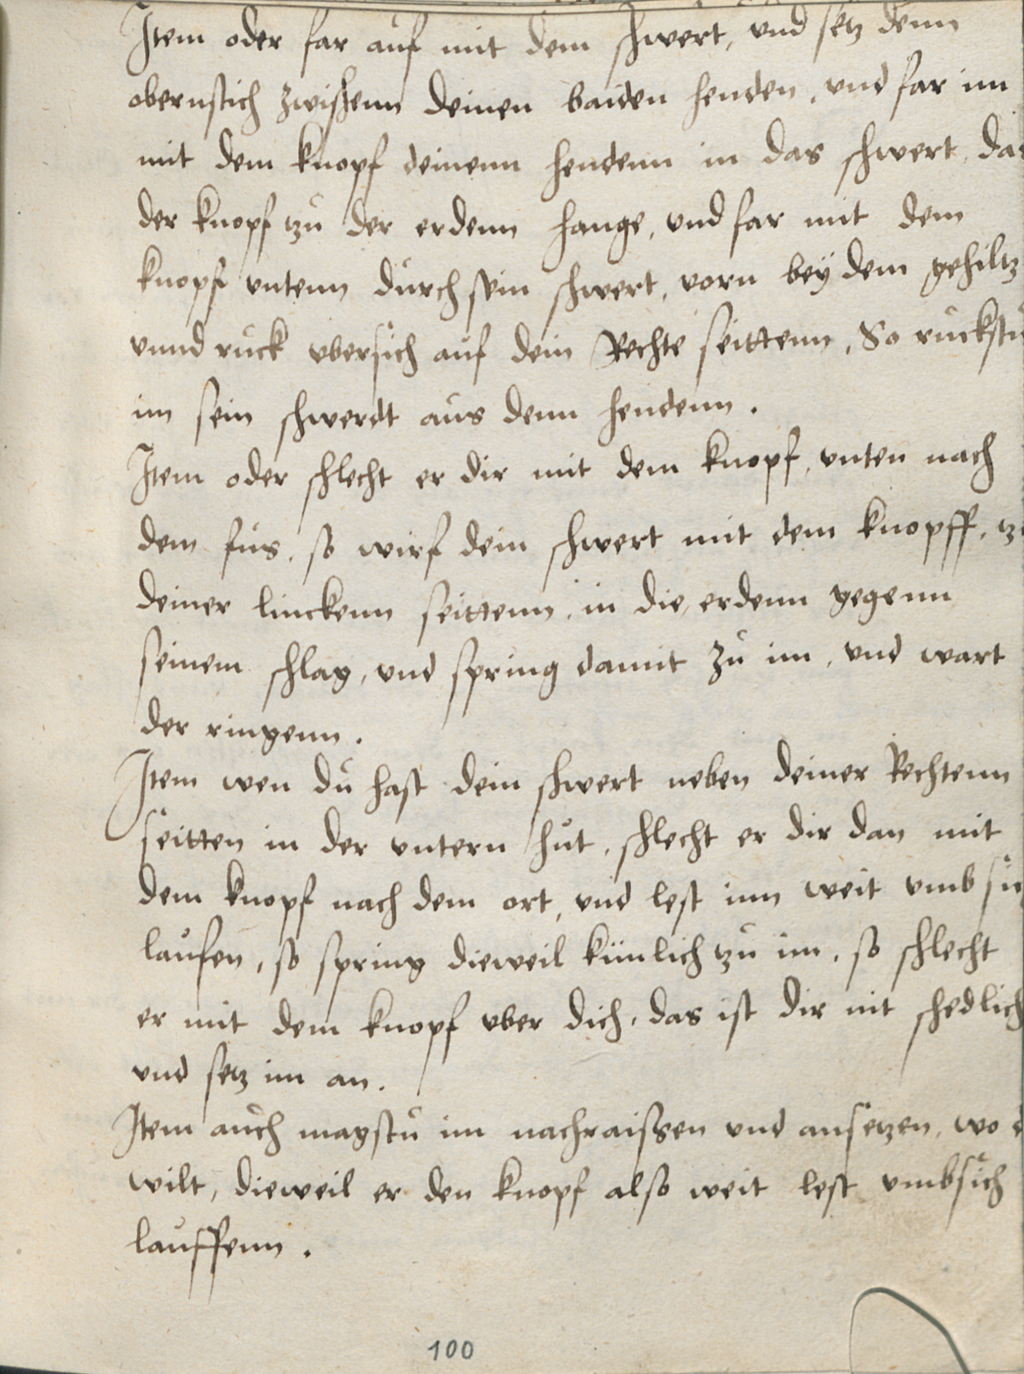 Item oder far auf mit dem schwert, vnd setz denn
obernstich zwischenn deinen baiden henden, vnd far im
mit dem knopf deinenn hendenn in das schwert, das
der knopf tzu der erdenn hange, vnd far mit dem
knopf vntenn durch sein schwert, vorn bey dem gehiltz
vnnd ruck vbersich auf dein Rechte seittenn, So ruckstu
im sein schwerdt aus denn hendenn.
Item oder schlecht er dir mit dem knopf, vnten nach
dem fus, so wirf dein schwert mit dem knopff, tzu
deiner linckenn seittenn, in die erdenn gegenn
seinem schlag, vnd spring damit zu im, vnd wart
der ringenn.
Item wen du hast dein schwert neben deiner Rechtenn
seitten in der vntern hut, schlecht er dir dan mit
dem knopf nach dem ort, vnd lest inn weit vmb sich
laufen, so spring dieweil künlich tzu im, so schlecht
er mit dem knopf vber dich, das ist dir nit schedlich
vnd setz im an.
Item auch magstu im nachraissen vnd ansetzen, wo
wilt, dieweil er den knopf also weit lest vmbsich
lauffenn.
100